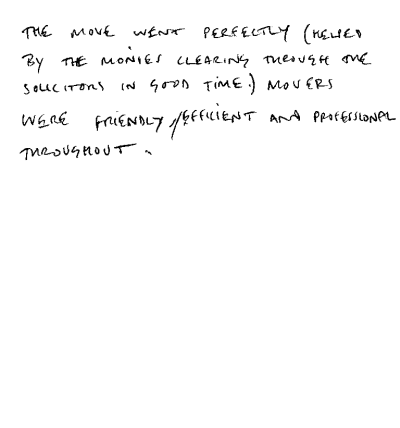 THE MOVE WENT PERFECTLY (HELPED
BY THE MONIES CLEARING THROUGH THE
SOLICITORS IN GOOD TIME.) MOVERS
WERE FRIENDLY//EFFICIENT AND PROFESSIONAL
THROUGHOUT.